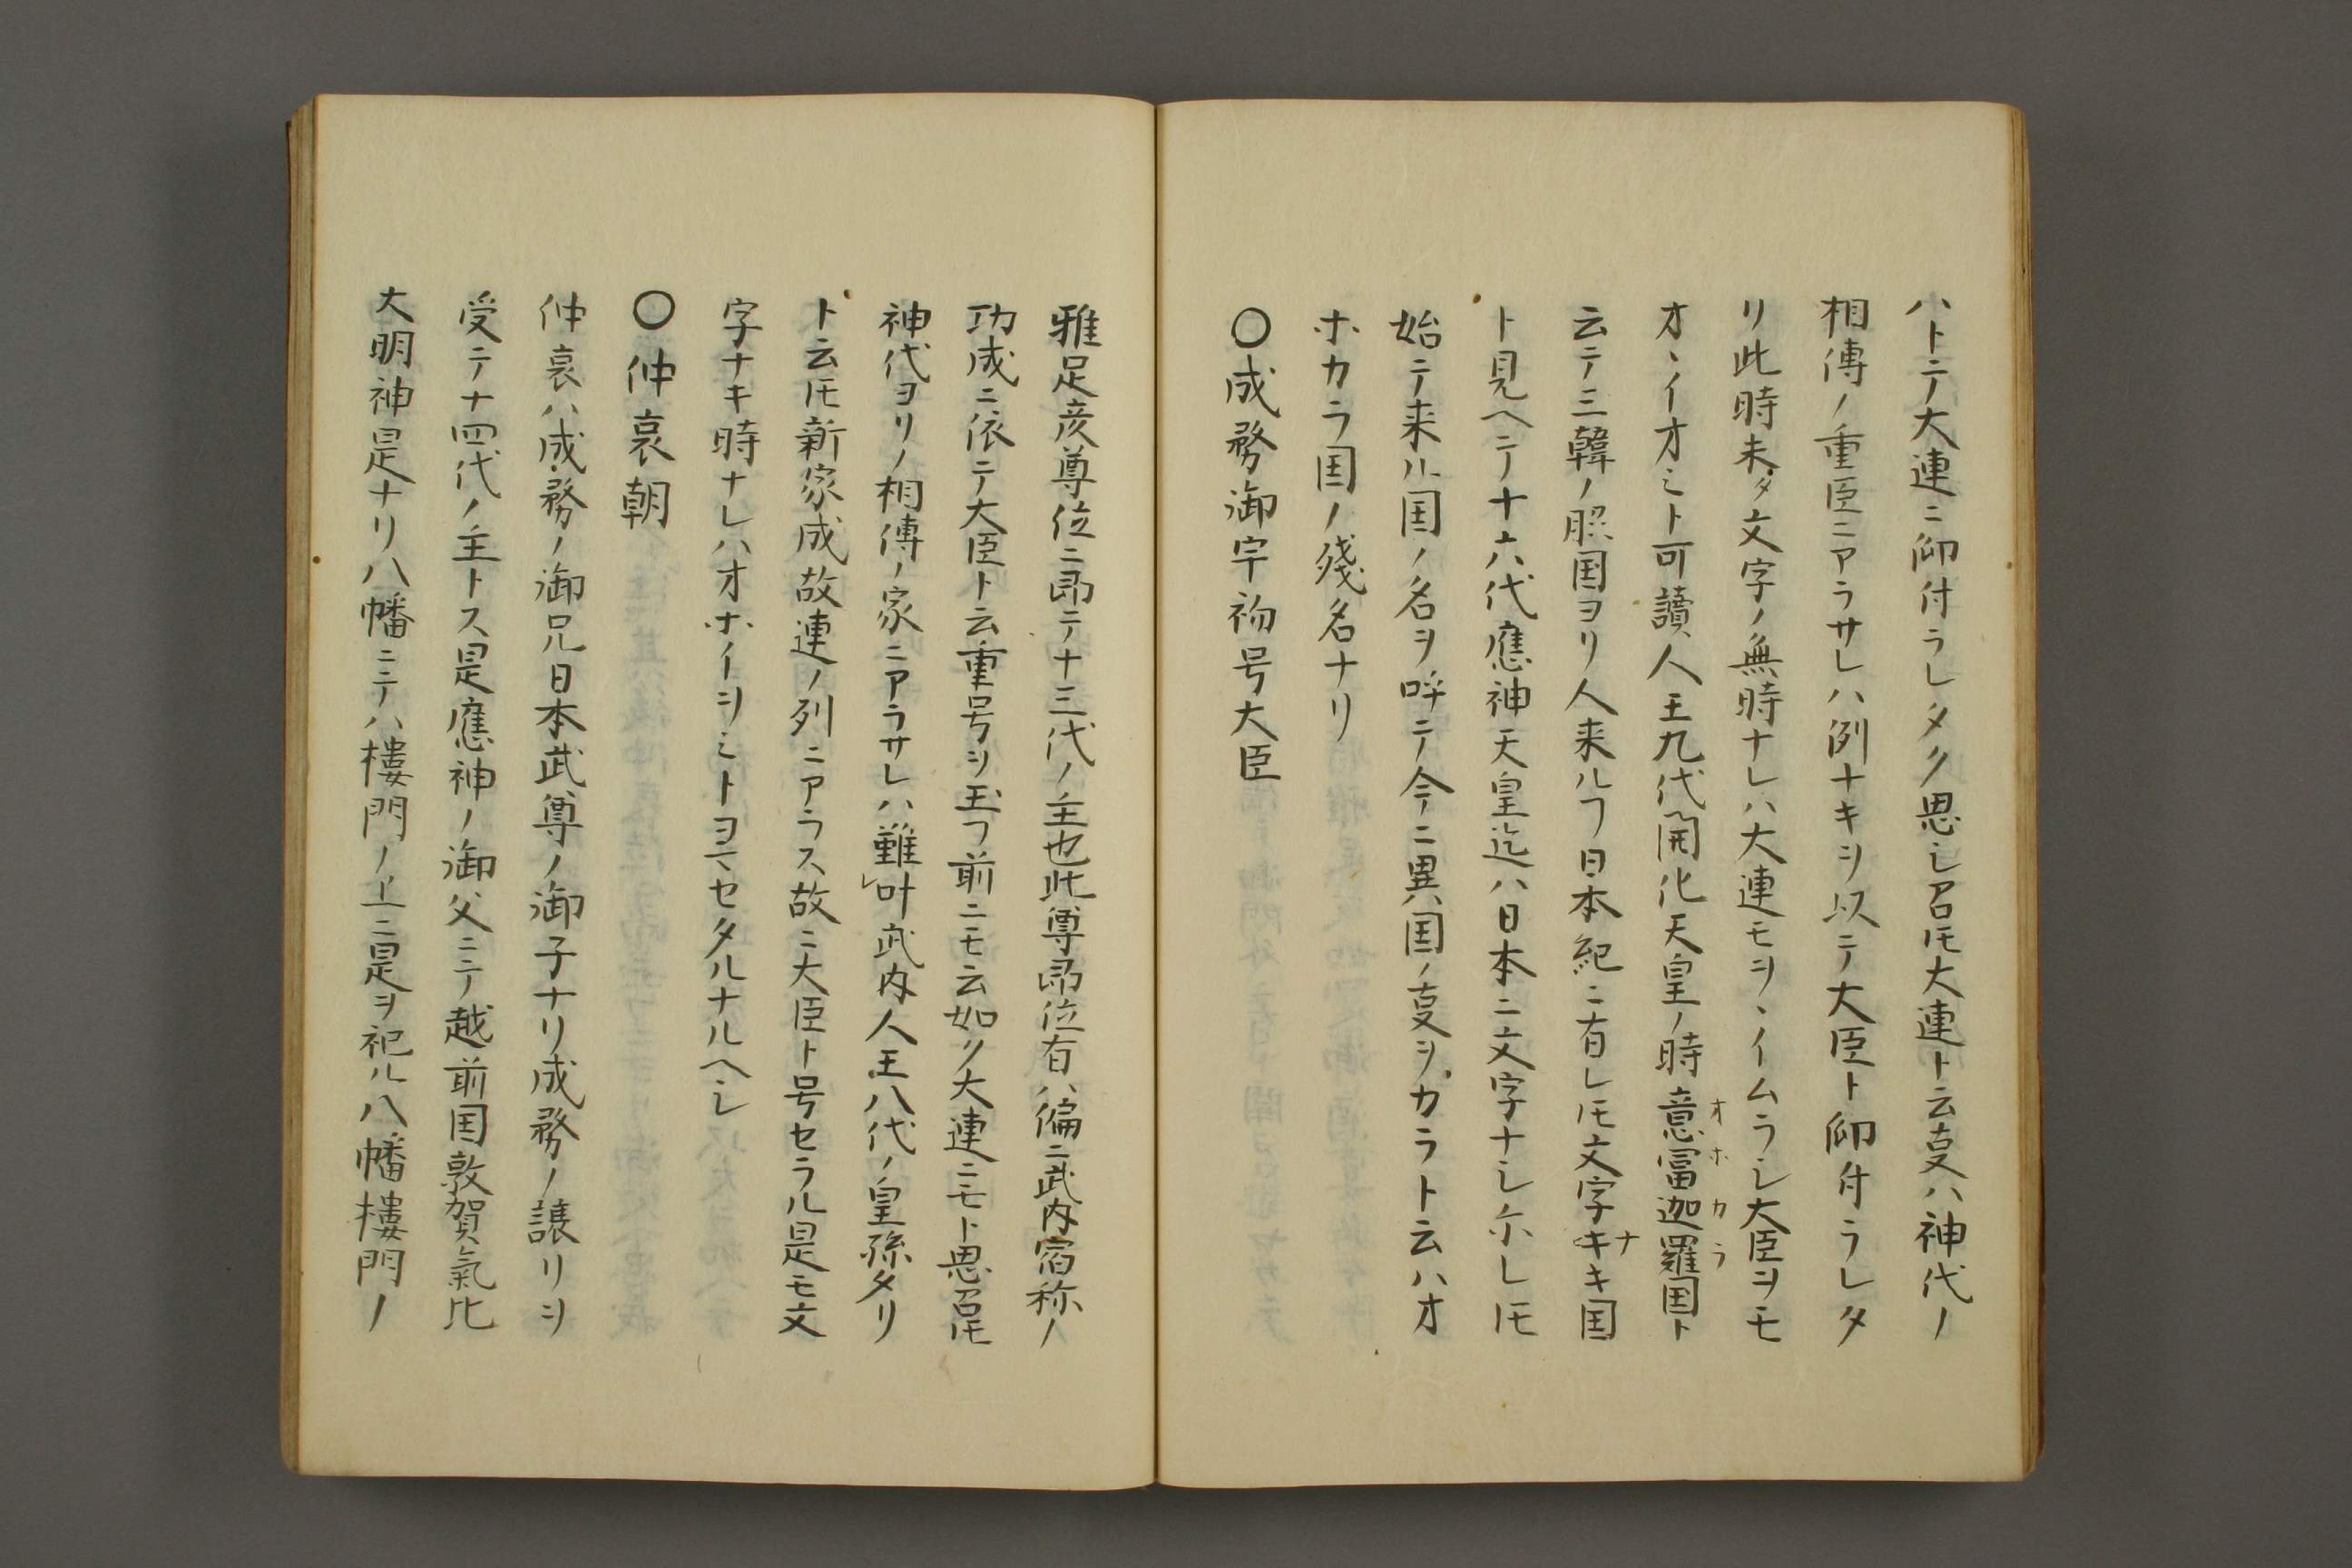 ハトテ大連ニ仰付ラレタク思シ召𪜈大連ト云叓ハ神代ノ
相傳ノ重臣ニアラサレハ例ナキヲ以テ大臣ト仰付ラレタ
リ此時未タ文字ノ無時ナレハ大連モヲヽイムラシ大臣ヲモ
オヽイオミト可讀人王九代開化天皇ノ時意冨迦羅国ト
オホカラ
云テ三韓ノ照国ヨリ人来ルヿ日本紀ニ有レ𪜈文字キキ国
ナ
ト見ヘテ十六代應神天皇迄ハ日本ニ文字ナシ尓レ𪜈
始テ来ル国ノ名ヲ呼テ今ニ異国ノ叓ヲカラト云ハオ
ホカラ国ノ残名ナリ
〇成務御宇初号大臣
雅足彦尊位ニ即テ十三代ノ主也此尊即位有ハ偏ニ武内宿称ノ
功成ニ依テ大臣ト云重号ヲ玉フ前ニモ云如ク大連ニモト思召𪜈
神代ヨリノ相傳ノ家ニアラサレハ難レ叶武内人王八代ノ皇孫タリ
ト云𪜈新家成故連ノ列ニアラス故ニ大臣ト号セラル是モ文
字ナキ時ナレハオホイヲミトヨマセタルナルヘシ
〇仲哀朝
仲哀ハ成務ノ御兄日本武尊ノ御子ナリ成務ノ譲リヲ
受テナ四代ノ主トス是應神ノ御父ニテ越前国敦賀氣比
大明神是ナリ八幡ニテハ樓門ノ上ニ是ヲ祀ル八幡樓門ノ